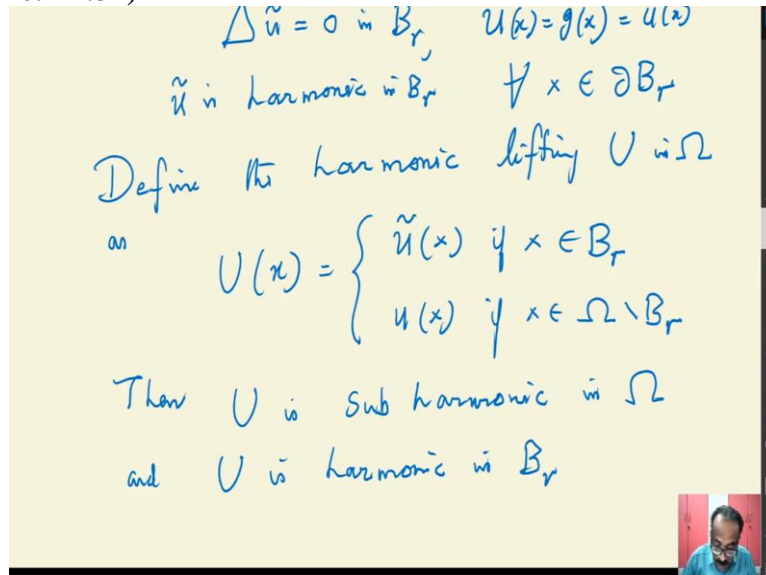 Δũ = 0 in B_r, U(x) = g(x) = u(x)
ũ is harmonic in B_r ∀ x ∈ ∂B_r
Define the harmonic lifting U in Ω
as U(x) = { ũ(x) if x ∈ B_r
u(x) if x ∈ Ω \ B_r
Then U is sub harmonic in Ω
and U is harmonic in B_r